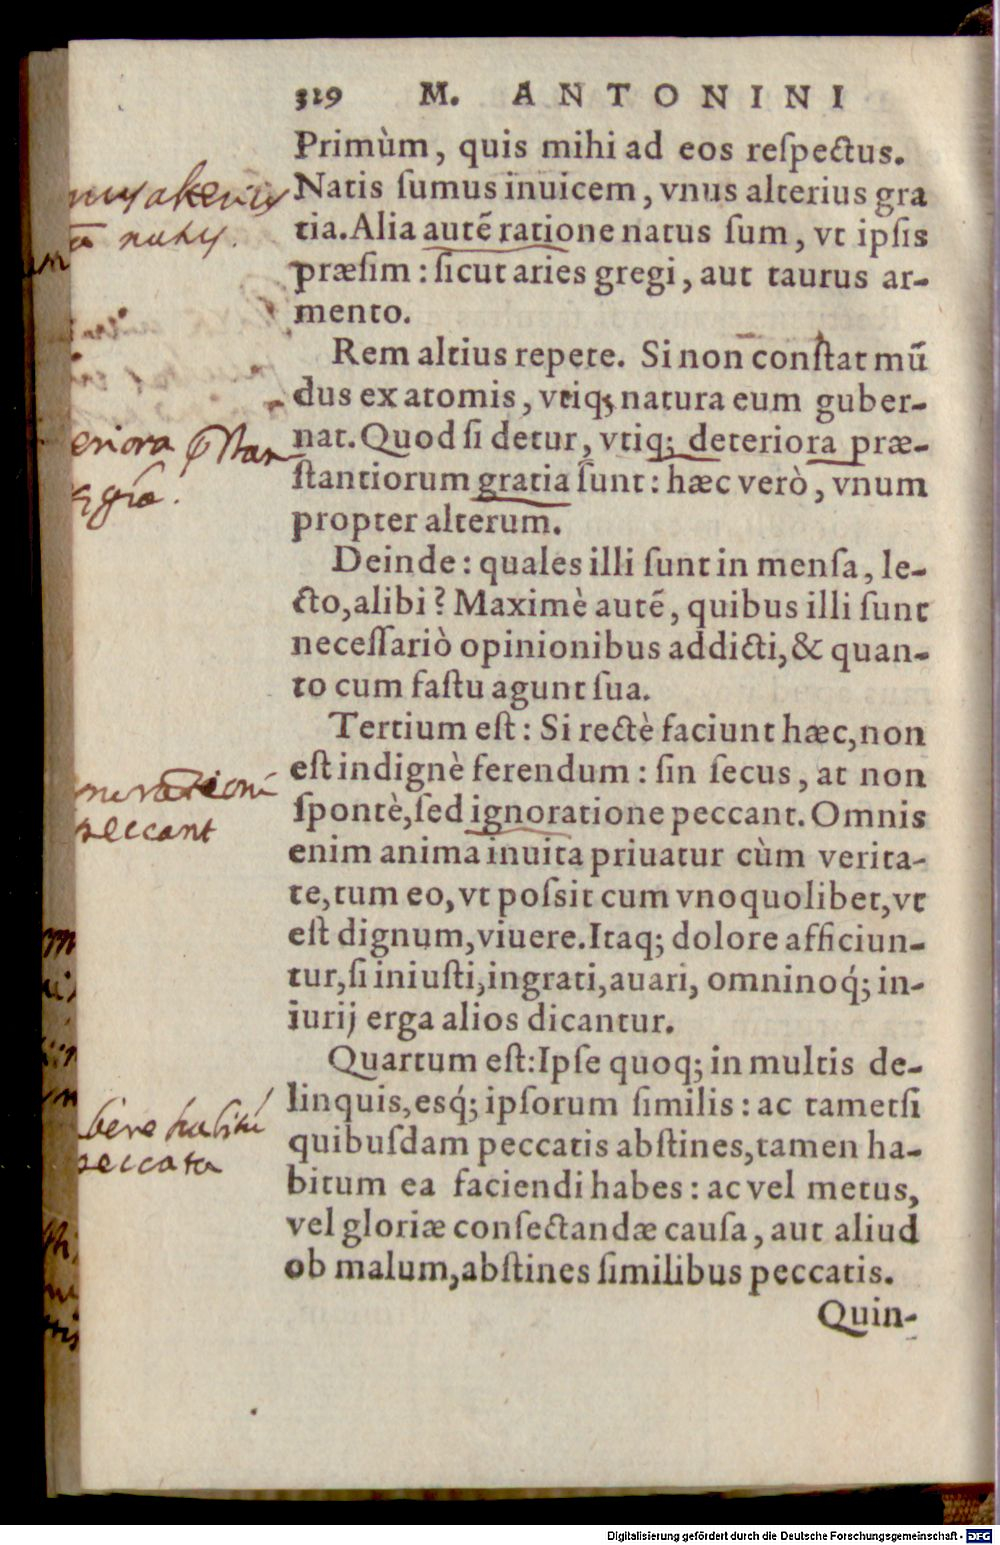 319 M. ANTONINI
Primùm, quis mihi ad eos reſpectus.
Natis ſumus inuicem, vnus alterius gra
tia. Alia autē ratione natus ſum, vt ipſis
præſim: ſicut aries gregi, aut taurus ar-
mento.
Rem altius repete. Si non conſtat mū
dus ex atomis, vtiq; natura eum guber-
nat. Quod ſi detur, vtiq; deteriora præ-
ſtantiorum gratia ſunt: hæc verò, vnum
propter alterum.
Deinde: quales illi ſunt in menſa, le-
cto, alibi? Maximè autē, quibus illi ſunt
neceſſariò opinionibus addicti, & quan-
to cum faſtu agunt ſua.
Tertium eſt: Si rectè faciunt hæc, non
eſt indignè ferendum: ſin ſecus, at non
ſpontè, ſed ignoratione peccant. Omnis
enim anima inuita priuatur cùm verita-
te, tum eo, vt poſsit cum vnoquolibet, vt
eſt dignum, viuere. Itaq; dolore afficiun-
tur, ſi iniuſti, ingrati, auari, omninoq́; in-
iurij erga alios dicantur.
Quartum eſt: Ipſe quoq; in multis de-
linquis, esq́; ipſorum ſimilis: ac tametſi
quibuſdam peccatis abſtines, tamen ha-
bitum ea faciendi habes: ac vel metus,
vel gloriæ conſectandæ cauſa, aut aliud
ob malum, abſtines ſimilibus peccatis.
Quin-
eriora
peccant
peccata
Digitalisierung gefördert durch die Deutsche Forschungsgemeinschaft - DFG